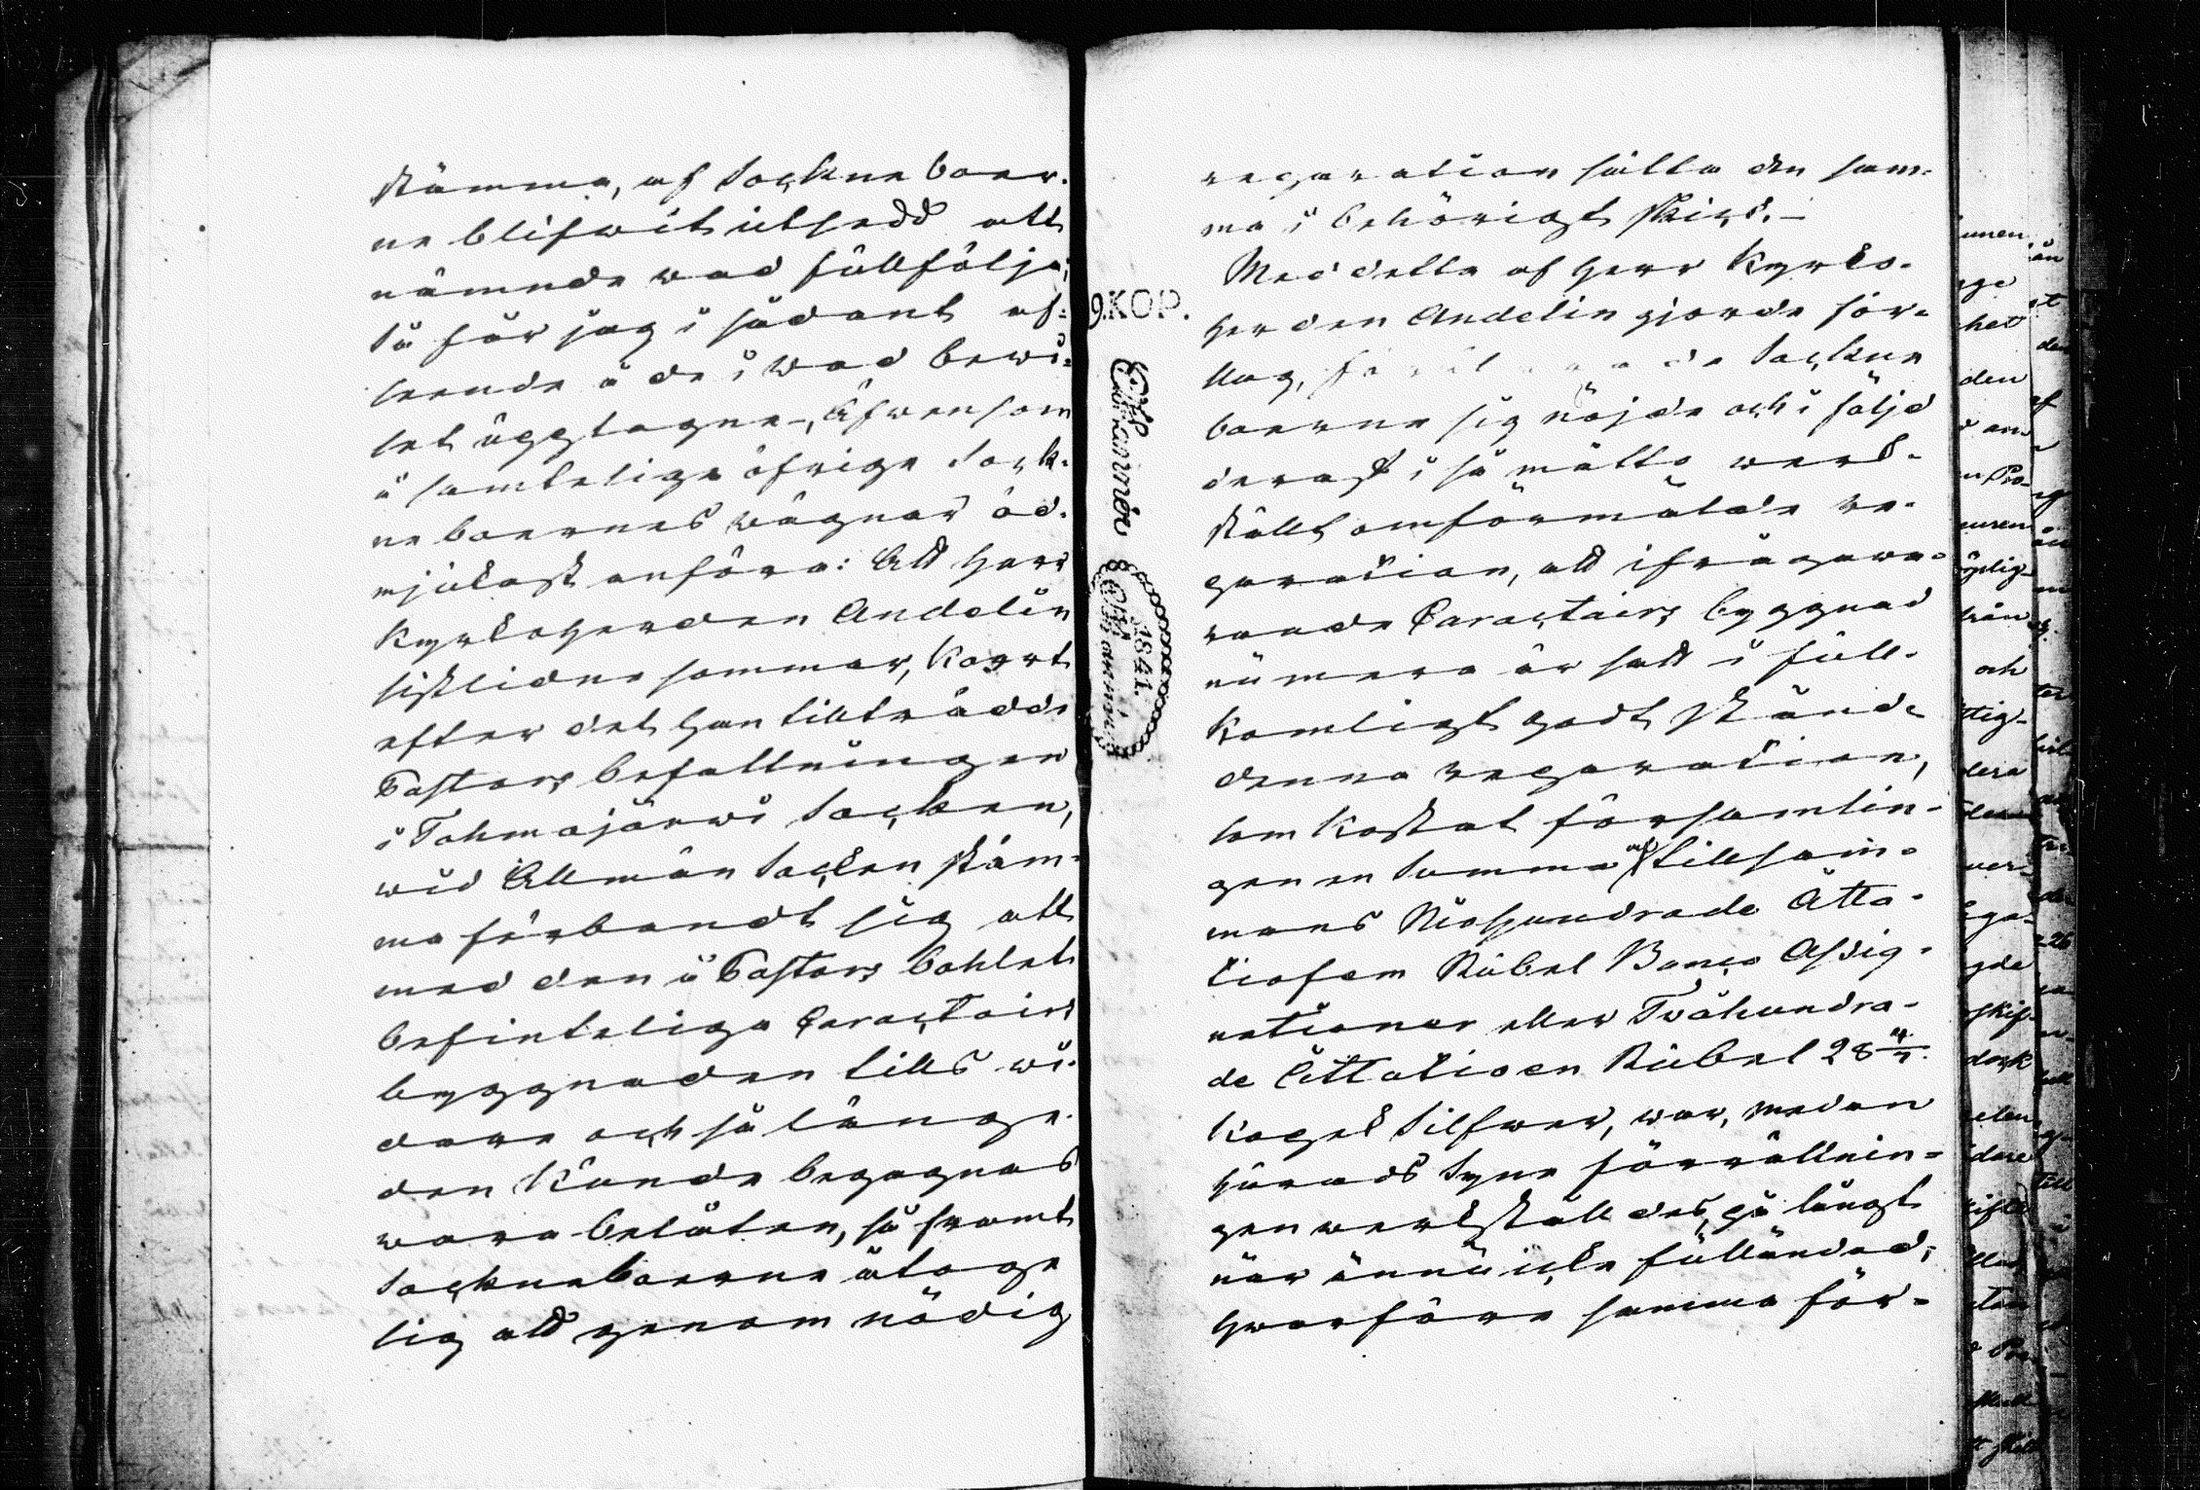 stämma, af Sockneboer-
ne blifwit utsedd att
nämnde wad fullfölja;
Så får jag i sådant af-
seende å de i Wad bewi-
set upptagne, Äfwensom
å samtelige öfrige Sock-
neboernes wägnar öd-
mjukast anföra: Att Herr
Kyrkoherden Andelin
sistlidne sommar, kort
efter det han tillträdde
Pastors befattningen
i Tohmajärwi Socken,
wid Allmän Socken stäm-
ma förbandt sig att
med den å Pastors bohlet
befinteliga Caractairs
byggnaden tills wi-
dare och så länge
den kunde begagnas
wara belåten, så framt
Sockneboerne åtoge
sig att genom nödig
reparation sätta den sam-
ma i behörigt skick.
Med detta af Herr Kyrko-
herden Andelin gjorde för-
slag, Sockne
boerne sig nöjde och i följd
deraf i så måtto werk-
stält omförmälde re-
paration, att ifrågawa-
rande Caractairs byggnad
numera är satt i full-
komligt godt stånd
denna reparation,
som kostat församlin-
gen en Summa af tillsam-
mans Niohundrade Åtta-
tiofem Rubel Banco Assig-
nationer eller Tvåhundra-
de Åttatioen Rubel 28 4/7
Kopek Silfwer, war, medan
Härads Syne förrättnin-
gen werkstäldes, på långt
när ännu icke fulländad,
hwarföre samma för-
9.KOP.
1841.